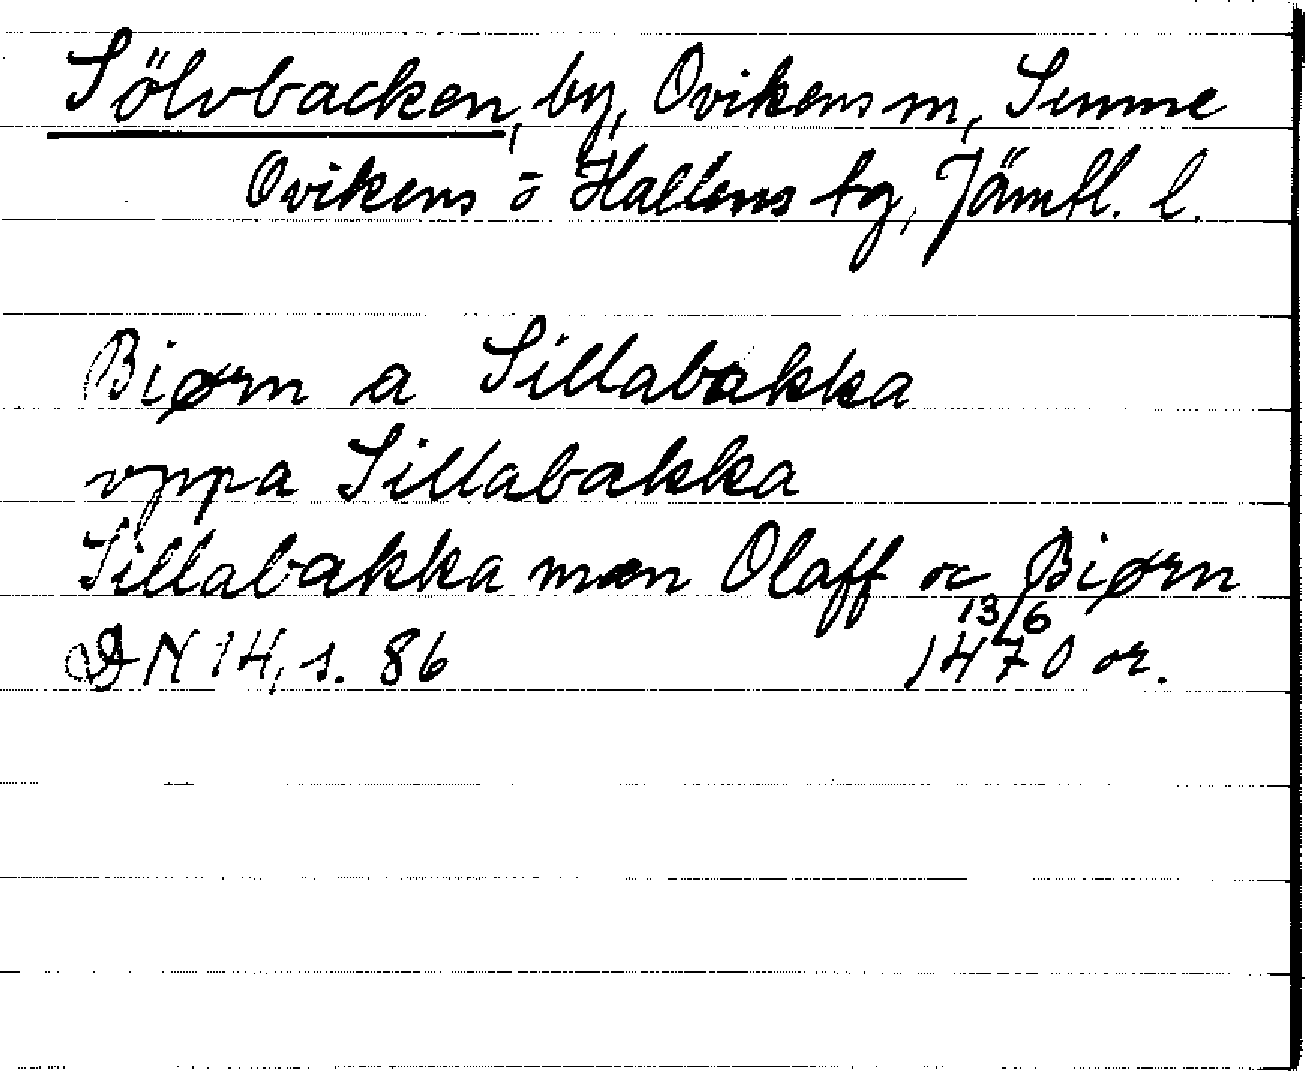 Sölvbacken, by, Ovikens sn, Sunne
Ovikens o Hallens tg, Jämtl. l.
Biørn a Sillabakka
vppa Sillabakka
Sillabakka mæn Olaff oc Biørn
13/6
DN 14, s. 86 1470 or.